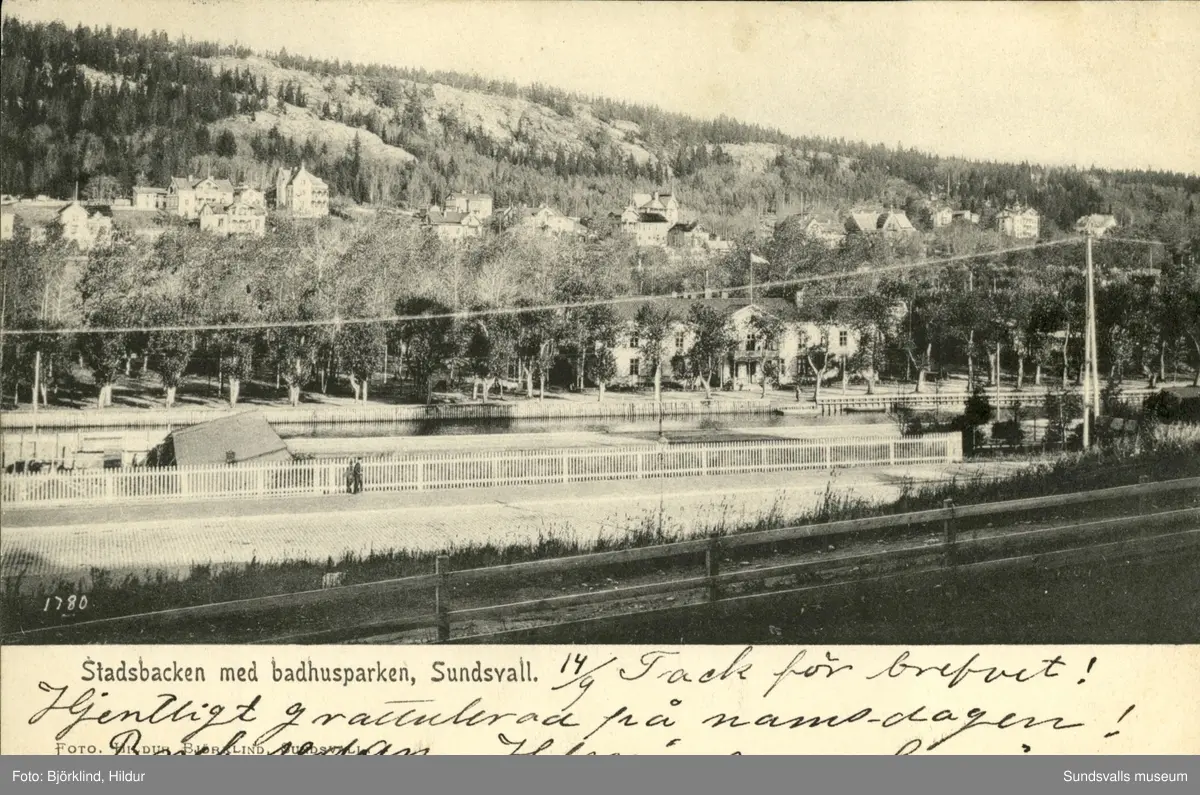 1780
Stadsbacken med badhusparken, Sundsvall. 14/9 Tack för brefvet!
Hjentligt grattulerad på nams-dagen!
FOTO. HILDUR BJÖRKLIND, SUNDSVALL.
Foto: Björklind, Hildur
Sundsvalls museum